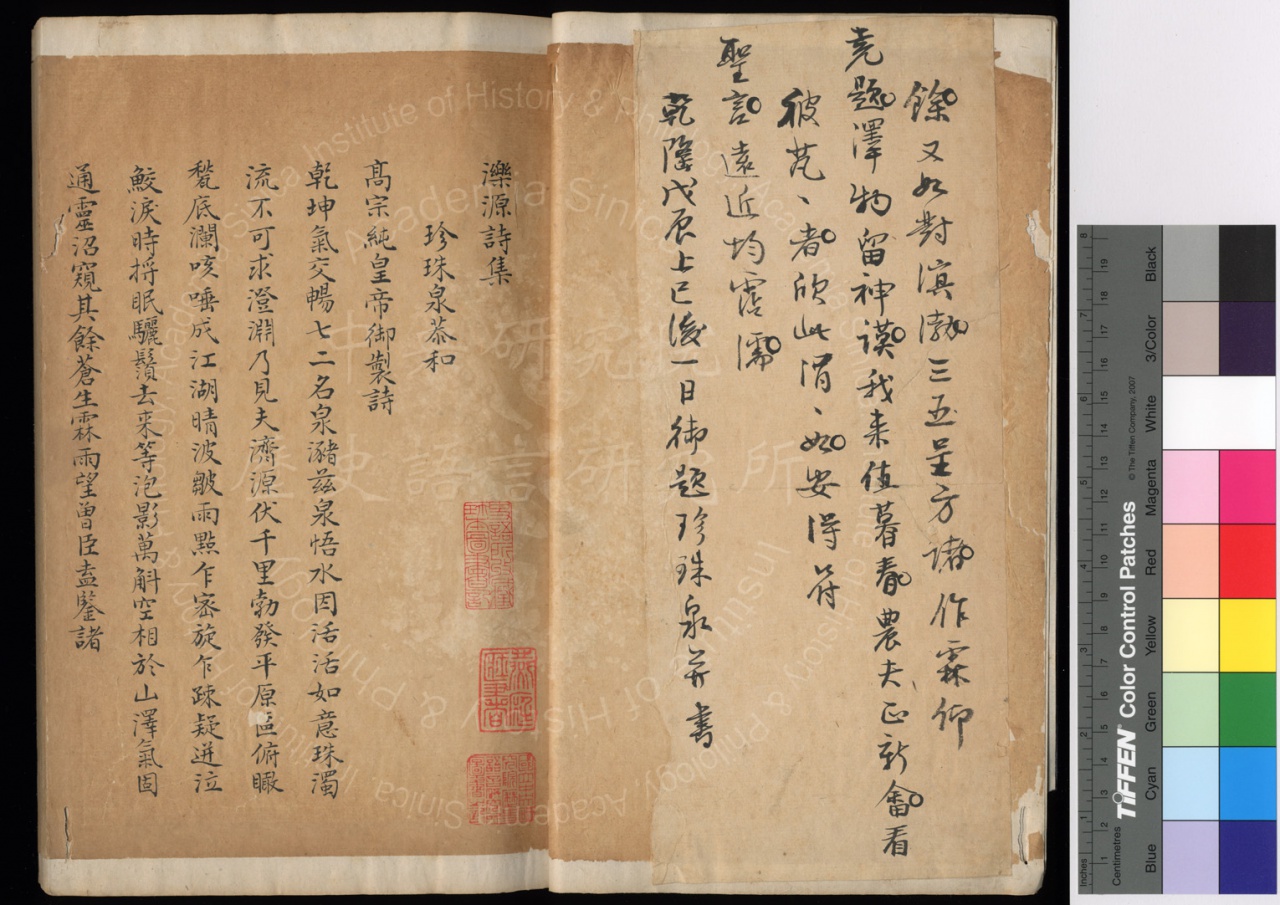 餘又如對溟渤三五呈方諸作霖仰
堯題澤物留神謨我来值暮春農夫正新畬看
彼芃丶者欣此涓丶如安得符
聖言遠近均霑濡
乾隆戊辰上巳後一日御題珍珠泉并書
濼源詩集
珍珠泉恭和
高宗純皇帝御製詩
乾坤氣交暢七二名泉瀦茲泉悟水因活活如意珠濁
流不可求澄淵乃見夫濟源伏千里勃發平原區俯瞰
甃底瀾咳唾成江湖晴波皺雨點乍密旋乍疎疑迸泣
鮫淚時捋眠驪鬚去来等泡影萬斛空相於山澤氣固
通靈沼窺其餘蒼生霖雨望曾臣盍鑒諸
中央研究院
歷史語言研究所
Institute of History & Philology
Academia Sinica
TIFFEN Color Control Patches
© The Tiffen Company, 2007
Inches
Centimetres
Blue
Cyan
Green
Yellow
Red
Magenta
White
3/Color
Black